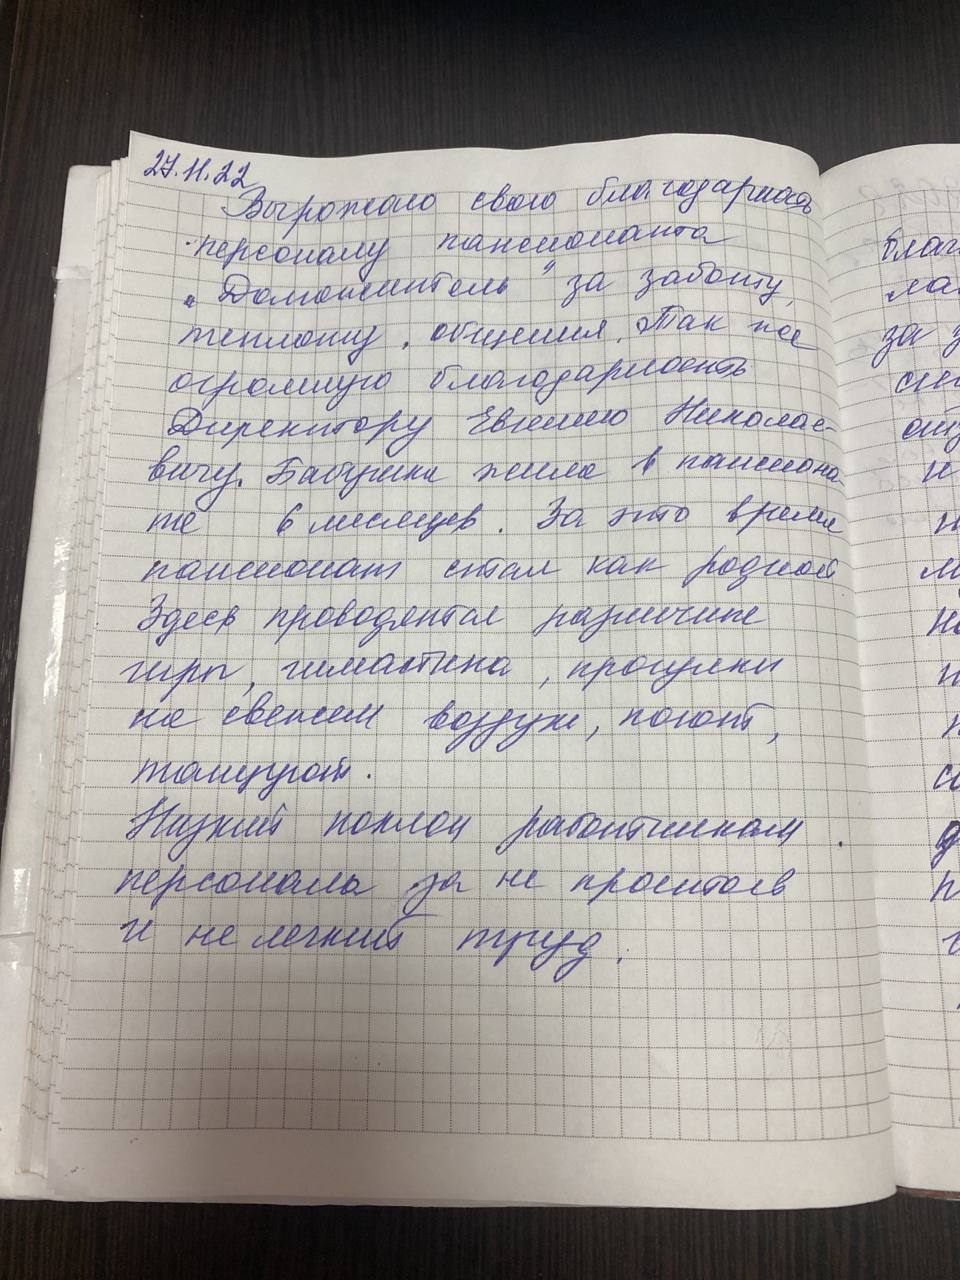 27.11.22
Вырожаю свою благодарность
персоналу пансионанта
„Доможитель" за заботу,
теплоту, общения. Так же
огромную благодарность
Директору Евгению Николае-
вичу. Бабушка жила в пансиона-
те 6 месяцев. За это время
пансионат стал как родной
Здесь проводятся различие
игры, гимастика, прогулки
на свежем воздухе, поют,
танцуют.
Низкий поклон работникам
персонала за не простой
и не легкий труд.